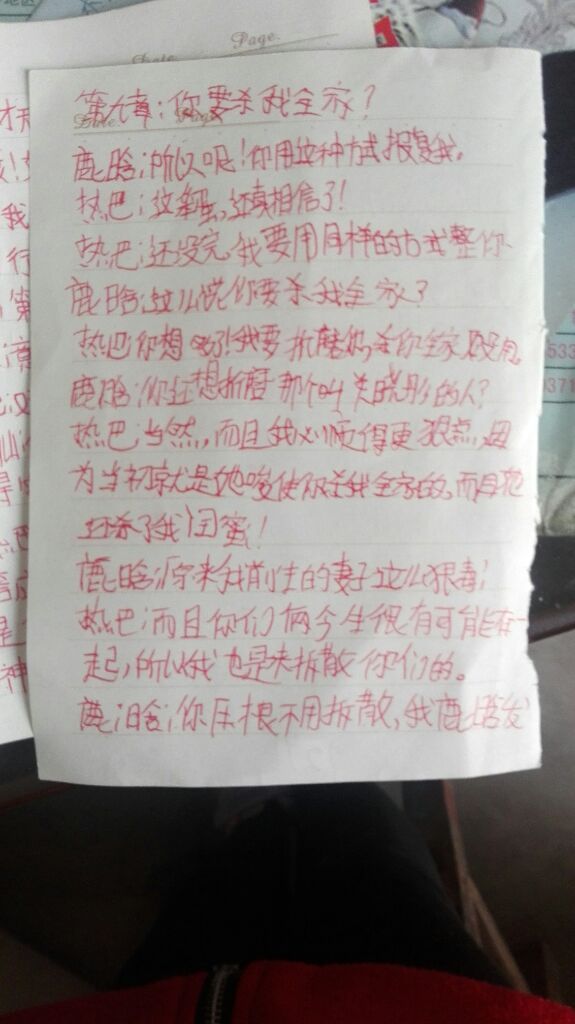 Page
Date Page
第九章：你要杀我全家？
鹿晗：所以呢！你用这种方式报复我。
热巴：这笨蛋，还真相信了！
热巴：还没完，我要用同样的方式整你
鹿晗：这么说你要杀我全家？
热巴：你想多了！我要折磨她，杀你全家没用。
鹿晗：你还想折磨那个叫关晓彤的人？
热巴：当然，而且我必须得更狠点，因
为当初就是她唆使你杀我全家的，而且她
还杀了我闺蜜！
鹿晗：原来我前生的妻子这么狠毒；
热巴：而且你们俩今生很有可能在一
起，所以我也是来拆散你们的。
鹿晗：你压根不用拆散，我鹿晗发